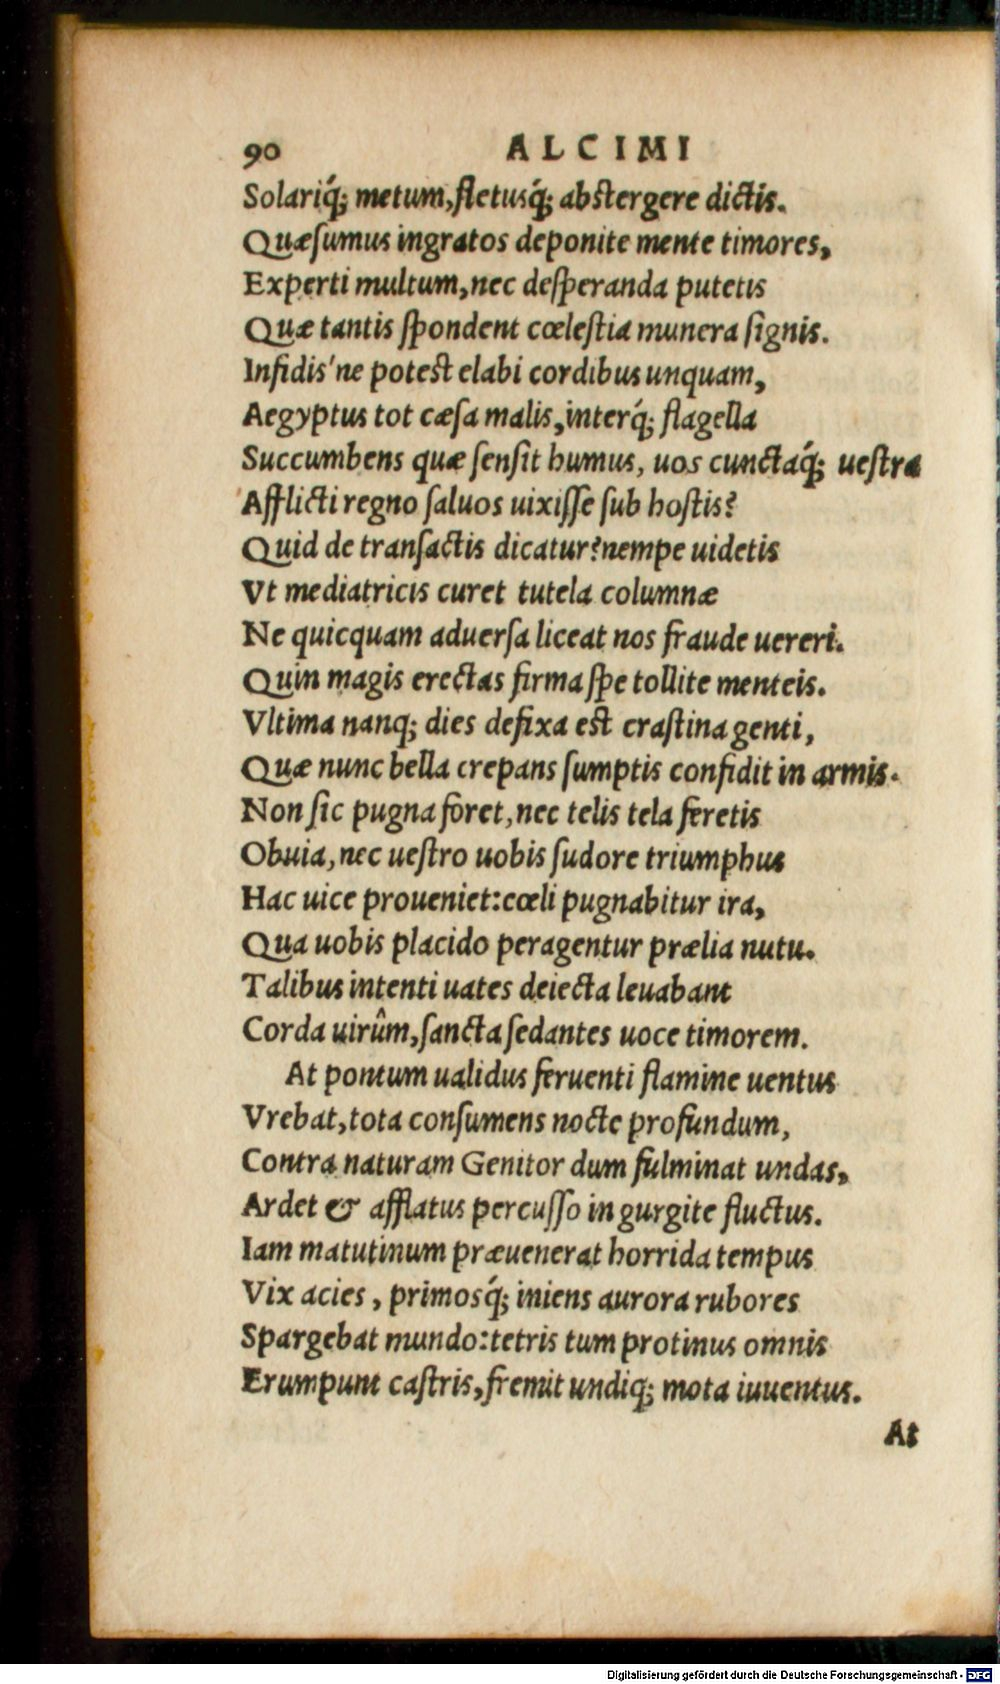 90 ALCIMI
Solariq́; metum, fletusq́; abstergere dictis.
Quæsumus ingratos deponite mente timores,
Experti multum, nec desperanda putetis
Quæ tantis spondent cœlestia munera signis.
Infidis'ne potest elabi cordibus unquam,
Aegyptus tot cæsa malis, interq́; flagella
Succumbens quæ sensit humus, uos cunctaq́; uestra
Afflicti regno saluos uixisse sub hostis?
Quid de transactis dicatur? nempe uidetis
Vt mediatricis curet tutela columnæ
Ne quicquam aduersa liceat nos fraude uereri.
Quin magis erectas firma spe tollite menteis.
Vltima nanq; dies defixa est crastina genti,
Quæ nunc bella crepans sumptis confidit in armis.
Non sic pugna foret, nec telis tela feretis
Obuia, nec uestro uobis sudore triumphus
Hac uice proueniet: cœli pugnabitur ira,
Qua uobis placido peragentur prælia nutu.
Talibus intenti uates deiecta leuabant
Corda uirûm, sancta sedantes uoce timorem.
At pontum ualidus feruenti flamine uentus
Vrebat, tota consumens nocte profundum,
Contra naturam Genitor dum fulminat undas,
Ardet & afflatus percusso in gurgite fluctus.
Iam matutinum præuenerat horrida tempus
Vix acies, primosq́; iniens aurora rubores
Spargebat mundo: tetris tum protinus omnis
Erumpunt castris, fremit undiq; mota iuuentus.
At
Digitalisierung gefördert durch die Deutsche Forschungsgemeinschaft - DFG